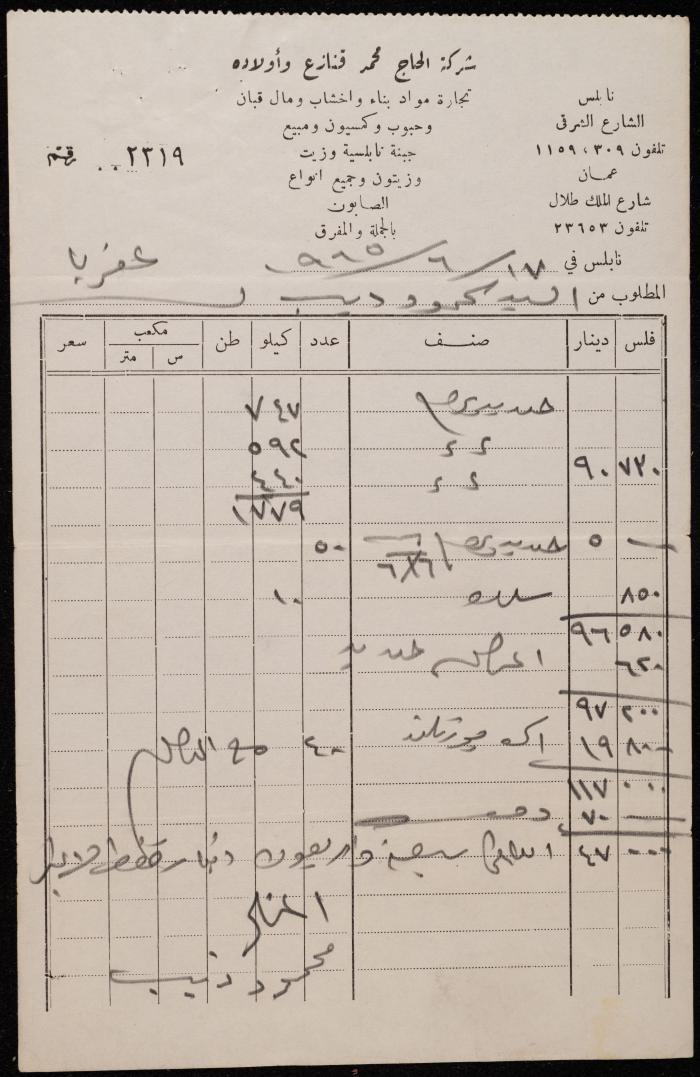 شركة الحاج محمد قنازع وأولاده
نابلس
الشارع الشرقي
تلفون ٣٠٩ ، ١١٥٩
عمان
شارع الملك طلال
تلفون ٢٣٦٥٣
تجارة مواد بناء واخشاب ومال قبان
وحبوب وكمسيون ومبيع
جبنة نابلسية وزيت
وزيتون وجميع انواع
الصابون
بالجملة والمفرق
رقم ٢٣١٩
نابلس في ١٧/٦/٩٦٥
المطلوب من السيد محمود ديب
فلس دينار صنف عدد كيلو طن مكعب سعر
س متر
٧٤٧
٥٩٢
٧٣٠ ٩٠ ٤٤٠
١٧٧٩
— ٥ ٥٠
٦/٦
٨٥٠ ١٠
٥٨٠ ٩٦
٦٢٠ حديد
٢٠٠ ٩٧
٨٠٠ ١٩ بورتلند ٤٠
٠٠٠ ١١٧
— ٧٠
٠٠٠ ٤٧ الباقي سبعة واربعون دينار فقط لا غير
محمود ذيب